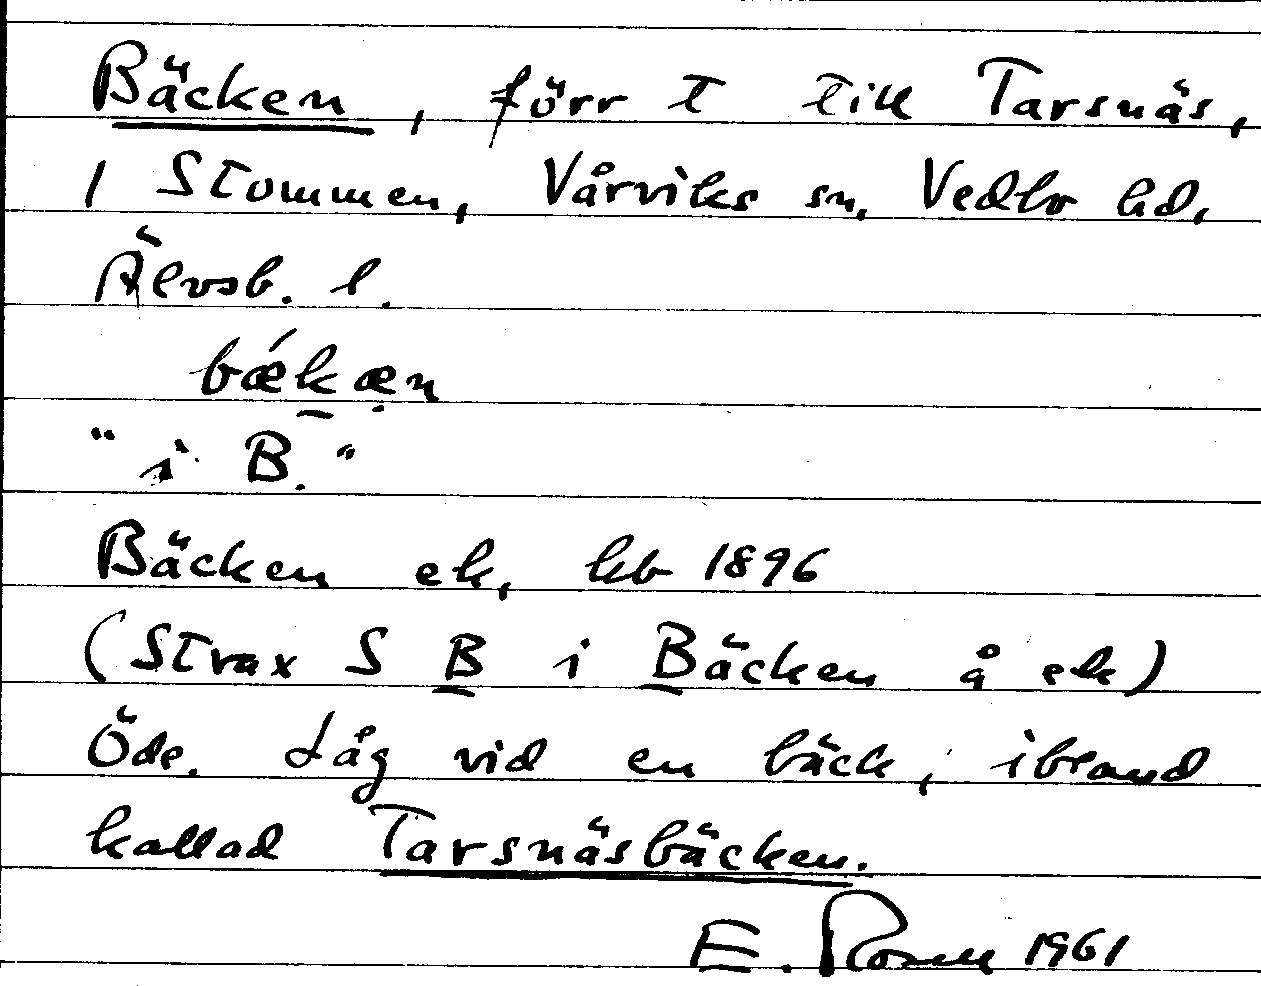 Bäcken, förr t till Tarsnäs,
1 Stommen, Vårviks sn, Vedbo hd,
Älvsb. l.
bǽkæn
"i B."
Bäcken ek, kb 1896
(Strax S B i Bäcken å ek)
Öde. Låg vid en bäck, ibland
kallad Tarsnäsbäcken.
E. Rosell 1961